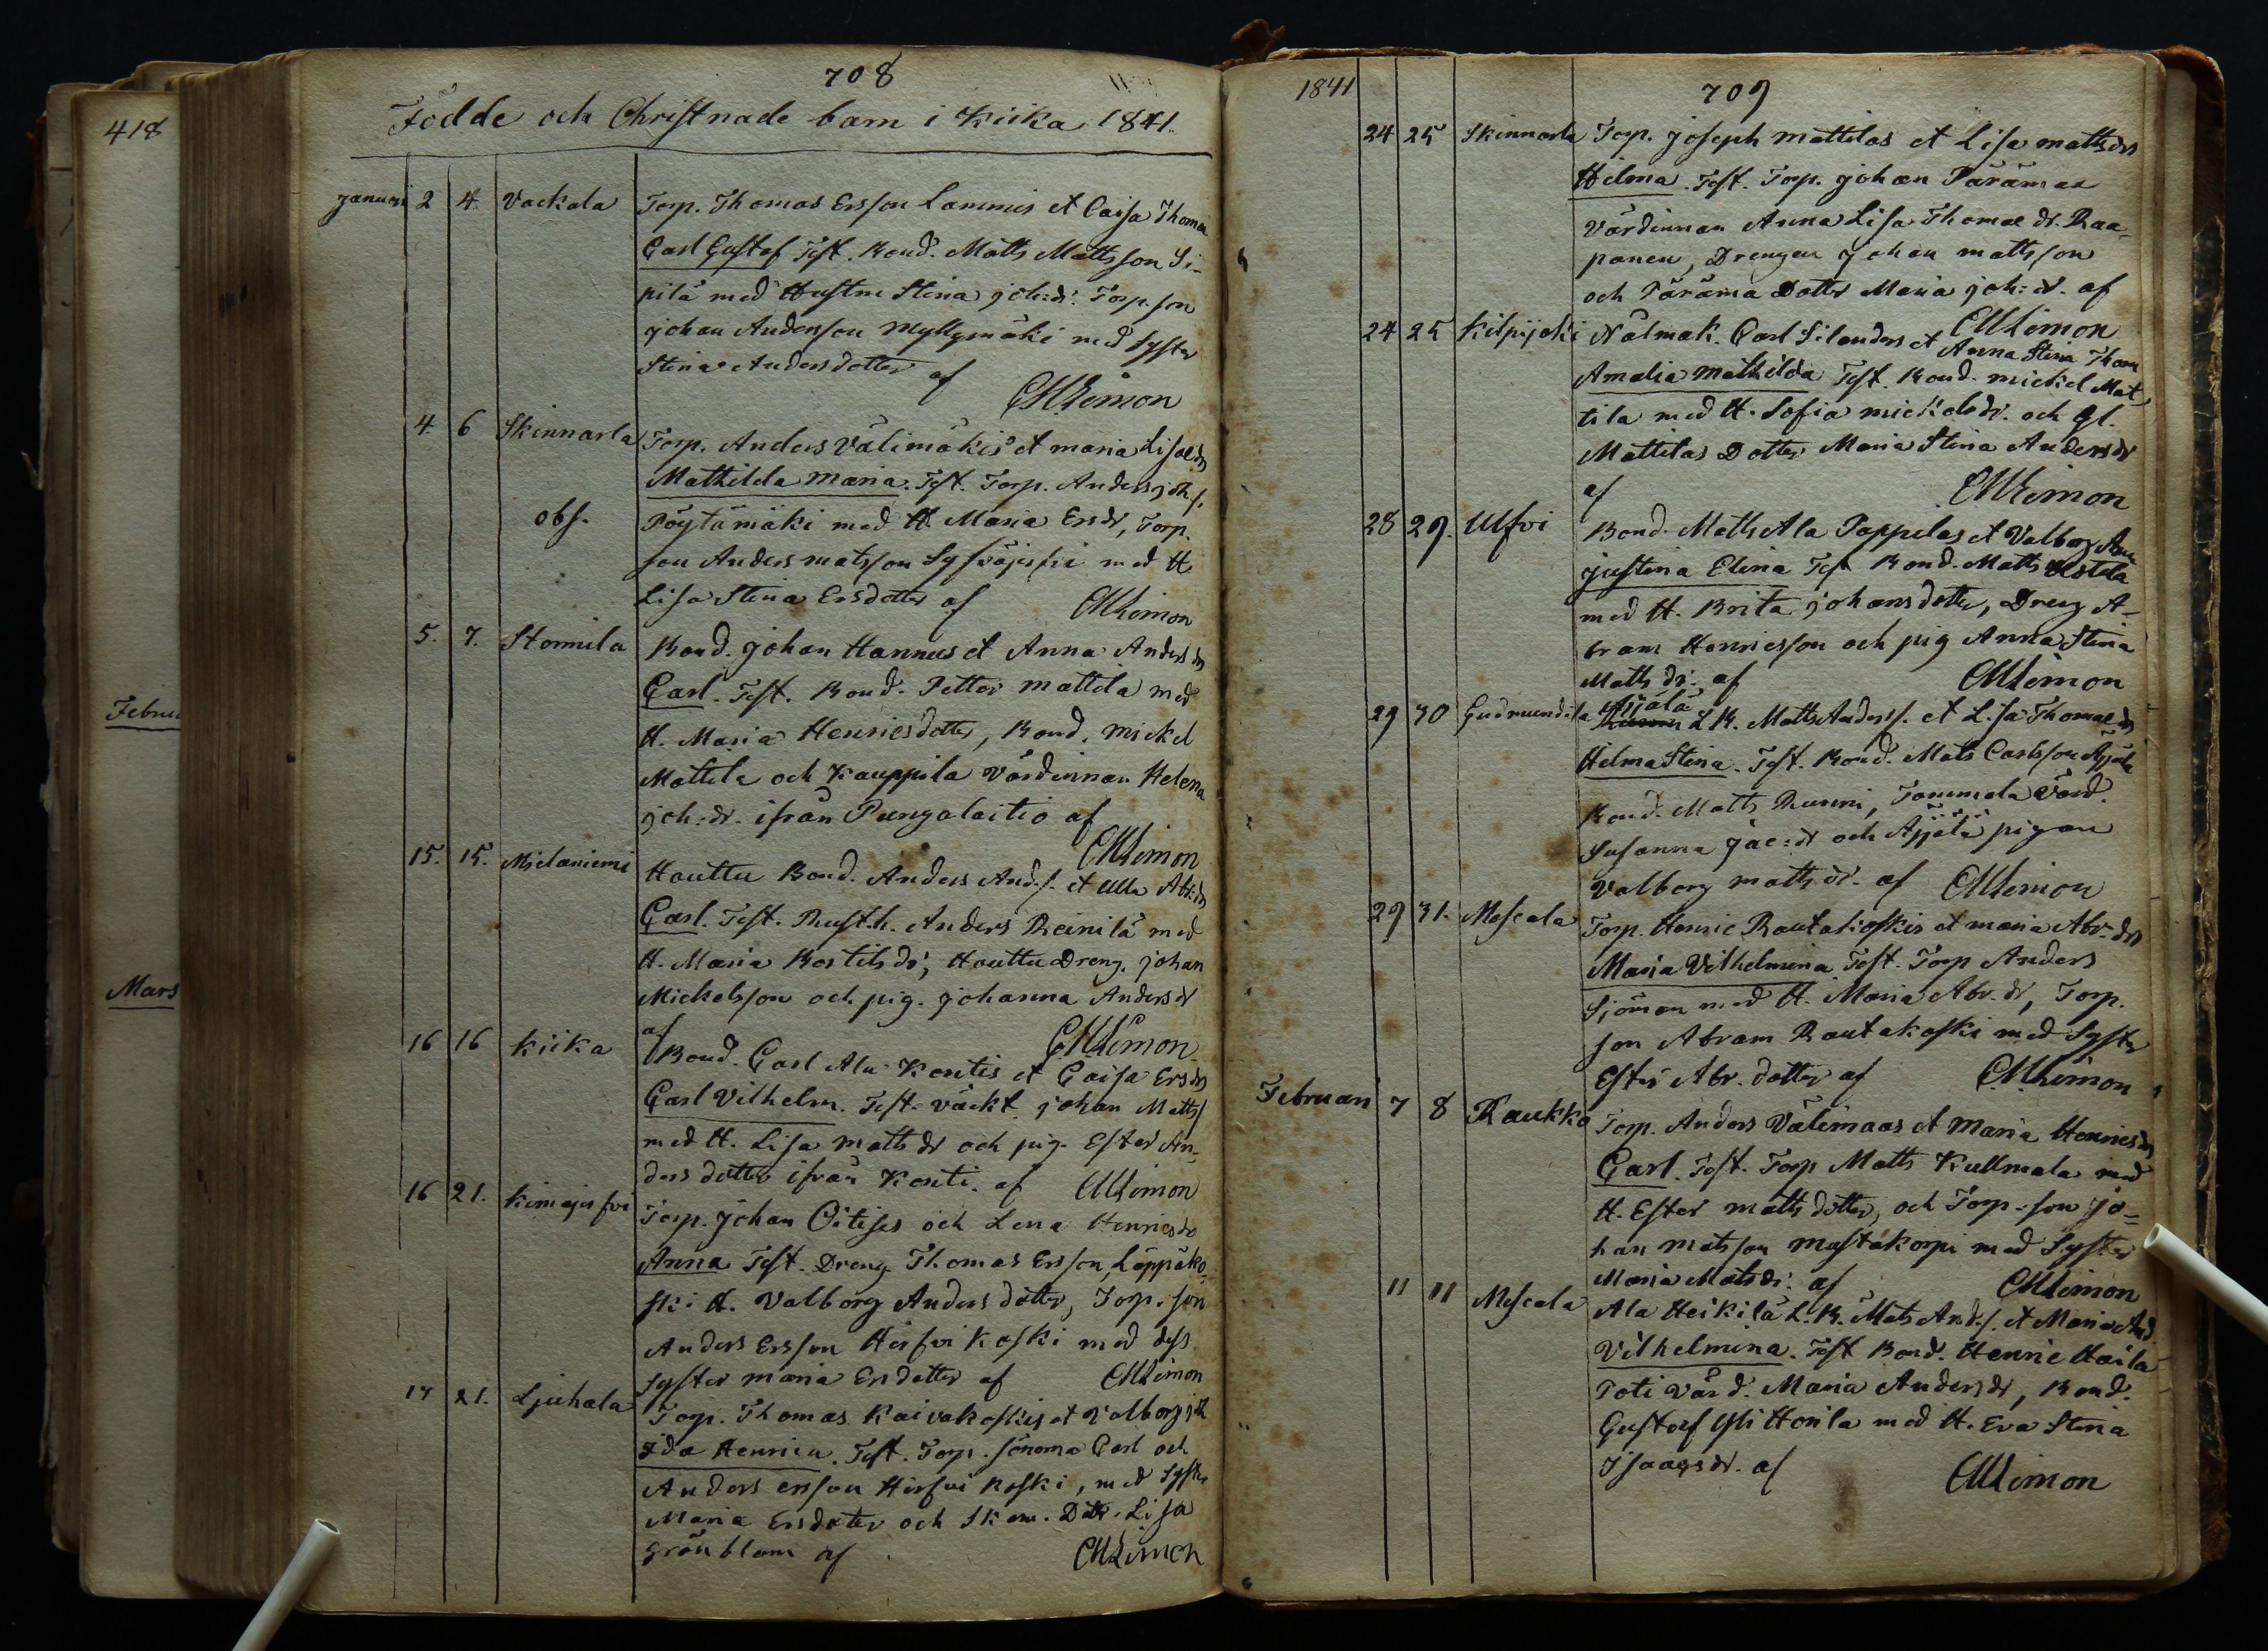 418
Februa
Mars
708
Födde och Christnade barn i Kiika 1841.
Januari 2 4. Vackala Torp. Thomas Ersson Lammis et Caisa Thomæ
Carl Gustaf Test. Bond. Matts Mattsson Si-
pilä med Hustru Stina Joh:dr. Torp. son
Johan Andersson Myllymäki med Syster
Stina Andersdotter af
CMLimon
4. 6 Skinnarla Torp. Anders Välimäkis et Maria Lisa
Mathilda Maria. Test. Torp. Anders Joh.s.
obs. Pöytämäki med H. Maria Ersdr, Torp.
son Anders Matsson Syfväjerfvi med H.
Lisa Stina Ersdotter af CMLimon
5. 7. Stormila Bond. Johan Hannus et Anna Anders dr
Carl. Test. Bond. Petter Mattila med
H. Maria Henricsdotter, Bond. Mickel
Mattila och Kauppila Värdinnan Helena
Joh:dr. ifrån Pungalaitio af
CMLimon
15. 15. Mjelaniemi Houttu Bond. Anders And.s. et Ulla Abr.dr
Carl. Test. Rusth. Anders Reinilä med
H. Maria Bertilsdr, Houttu Dreng. Johan
Mickelsson och pig. Johanna Andersdr
af CMLimon
16 16 Kiika Bond. Carl Ala Kontis et Caisa Ersdr
Carl Vilhelm. Test. väckt. Johan Matts
med H. Lisa Mattsdr och pig. Ester An-
dersdotter ifrån Konti. af CMLimon
16 21. Kimajerfvi Torp. Johan Oitises och Lena Henricsdr
Anna Test. Dreng Thomas Ersson, Läppäko-
ski H. Valborg Andersdotter, Torp. son
Anders Ersson Hirfvikoski med dess
Syster Maria Ersdotter af CMLimon
17 21. Ljuhala Torp. Thomas Kaivakoskis et Valborg Joh
Ida Henrica. Test. Torp. sönerna Carl och
Anders Ersson Hirfvikoski, med Syster
Maria Ersdoter och Skom. Dotr. Lisa
Grönblom af CMLimon
1841
709
24 25 Skinnarla Torp. Joseph Mattilas et Lisa Mattsdr
Hilma. Test. Torp. Johan Pärämaa
Värdinnan Anna Lisa Thomæ dr. Raa-
panen, Drengen Johan Mattsson
och Pärämaa Dotter Maria Joh:dr. af
CMLimon
24 25 Kilpijoki Nålmak. Carl Silanders et Anna Stina Thom
Amalia Mathilda Test. Bond. Mickel Mat-
tila med H. Sofia Mickelsdr. och gl.
Mattilas Dotter Maria Stina Andersdr
af CMLimon
28 29. Ulfvi Bond. Matts Ala Pappilas et Valborg And
Justina Elina Test Bond. Matts Uotila
med H. Brita Johansdotter, Dreng A-
bram Henricsson och pig Anna Stina
Mattsdr. af CMLimon
29 30 Gudmundila Äijälä L.K. Matts Anders. et Lisa Thomæ dr
Hilma Stina. Test. Bond. Mats Carlsson Äijälä
Bond. Matts Runni, Tommola Värd.
Susanna Jac:dr och Äijälä pigan
Valborg Mattsdr. af CMLimon
29 31. Mescala Torp. Henric Rautakoskis et Maria Abr.dr
Maria Vilhelmina Test. Torp Anders
Sjöman med H. Maria Abr.dr, Torp.
son Abram Rautakoski med Syster
Ester Abr.dotter af CMLimon
Februari 7 8 Raukko Torp. Anders Välimaas et Maria Henricsdr
Carl. Test. Torp Matts Kullmala med
H. Ester Mattsdotter, och Torp. son Jo-
han Matsson Mustakorpi med Syster
Maria Matsdr. af CMLimon
11 11 Mescala Ala Heikilä L.K. Mats And.s. et Maria And.
Vilhelmina. Test Bond. Henric Haila
Toti Värd. Maria Andersdr, Bond.
Gustaf Yli Honila med H. Eva Stina
Isaacsdr. af CMLimon